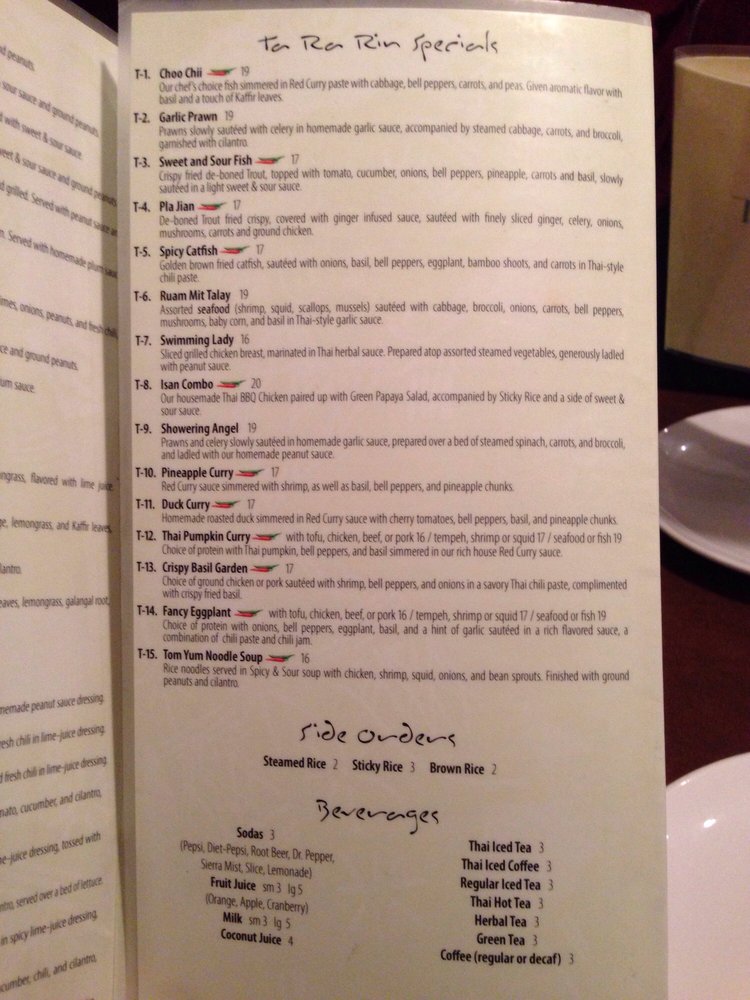 d peanuts.
sour sauce and ground peanuts
d with sweet & sour sauce.
weet & sour sauce and ground peanuts
d grilled. Served with peanut sauce
n. Served with homemade plum sauce
limes, onions, peanuts, and fresh chili,
ce and ground peanuts.
um sauce.
ngrass, flavored with lime juice
ge, lemongrass, and Kaffir leaves,
ilantro.
eaves, lemongrass, galangal root,
memade peanut sauce dressing.
esh chili in lime-juice dressing.
d fresh chili in lime-juice dressing.
mato, cucumber, and cilantro,
e-juice dressing, tossed with
ntro, served over a bed of lettuce.
in spicy lime-juice dressing,
cumber, chili, and cilantro,
Ta Ra Rin Specials
T-1. Choo Chii 19
Our chef's choice fish simmered in Red Curry paste with cabbage, bell peppers, carrots, and peas. Given aromatic flavor with
basil and a touch of Kaffir leaves.
T-2. Garlic Prawn 19
Prawns slowly sautéed with celery in homemade garlic sauce, accompanied by steamed cabbage, carrots, and broccoli,
garnished with cilantro.
T-3. Sweet and Sour Fish 17
Crispy fried de-boned Trout, topped with tomato, cucumber, onions, bell peppers, pineapple, carrots and basil, slowly
sautéed in a light sweet & sour sauce.
T-4. Pla Jian 17
De-boned Trout fried crispy, covered with ginger infused sauce, sautéed with finely sliced ginger, celery, onions,
mushrooms, carrots and ground chicken.
T-5. Spicy Catfish 17
Golden brown fried catfish, sautéed with onions, basil, bell peppers, eggplant, bamboo shoots, and carrots in Thai-style
chili paste.
T-6. Ruam Mit Talay 19
Assorted seafood (shrimp, squid, scallops, mussels) sautéed with cabbage, broccoli, onions, carrots, bell peppers,
mushrooms, baby corn, and basil in Thai-style garlic sauce.
T-7. Swimming Lady 16
Sliced grilled chicken breast, marinated in Thai herbal sauce. Prepared atop assorted steamed vegetables, generously ladled
with peanut sauce.
T-8. Isan Combo 20
Our housemade Thai BBQ Chicken paired up with Green Papaya Salad, accompanied by Sticky Rice and a side of sweet &
sour sauce.
T-9. Showering Angel 19
Prawns and celery slowly sautéed in homemade garlic sauce, prepared over a bed of steamed spinach, carrots, and broccoli,
and ladled with our homemade peanut sauce.
T-10. Pineapple Curry 17
Red Curry sauce simmered with shrimp, as well as basil, bell peppers, and pineapple chunks.
T-11. Duck Curry 17
Homemade roasted duck simmered in Red Curry sauce with cherry tomatoes, bell peppers, basil, and pineapple chunks.
T-12. Thai Pumpkin Curry with tofu, chicken, beef, or pork 16 / tempeh, shrimp or squid 17 / seafood or fish 19
Choice of protein with Thai pumpkin, bell peppers, and basil simmered in our rich house Red Curry sauce.
T-13. Crispy Basil Garden 17
Choice of ground chicken or pork sautéed with shrimp, bell peppers, and onions in a savory Thai chili paste, complimented
with crispy fried basil.
T-14. Fancy Eggplant with tofu, chicken, beef, or pork 16 / tempeh, shrimp or squid 17 / seafood or fish 19
Choice of protein with onions, bell peppers, eggplant, basil, and a hint of garlic sautéed in a rich flavored sauce, a
combination of chili paste and chili jam.
T-15. Tom Yum Noodle Soup 16
Rice noodles served in Spicy & Sour soup with chicken, shrimp, squid, onions, and bean sprouts. Finished with ground
peanuts and cilantro.
Side Orders
Steamed Rice 2 Sticky Rice 3 Brown Rice 2
Beverages
Sodas 3
(Pepsi, Diet-Pepsi, Root Beer, Dr. Pepper,
Sierra Mist, Slice, Lemonade)
Fruit Juice sm 3 lg 5
(Orange, Apple, Cranberry)
Milk sm 3 lg 5
Coconut Juice 4
Thai Iced Tea 3
Thai Iced Coffee 3
Regular Iced Tea 3
Thai Hot Tea 3
Herbal Tea 3
Green Tea 3
Coffee (regular or decaf) 3